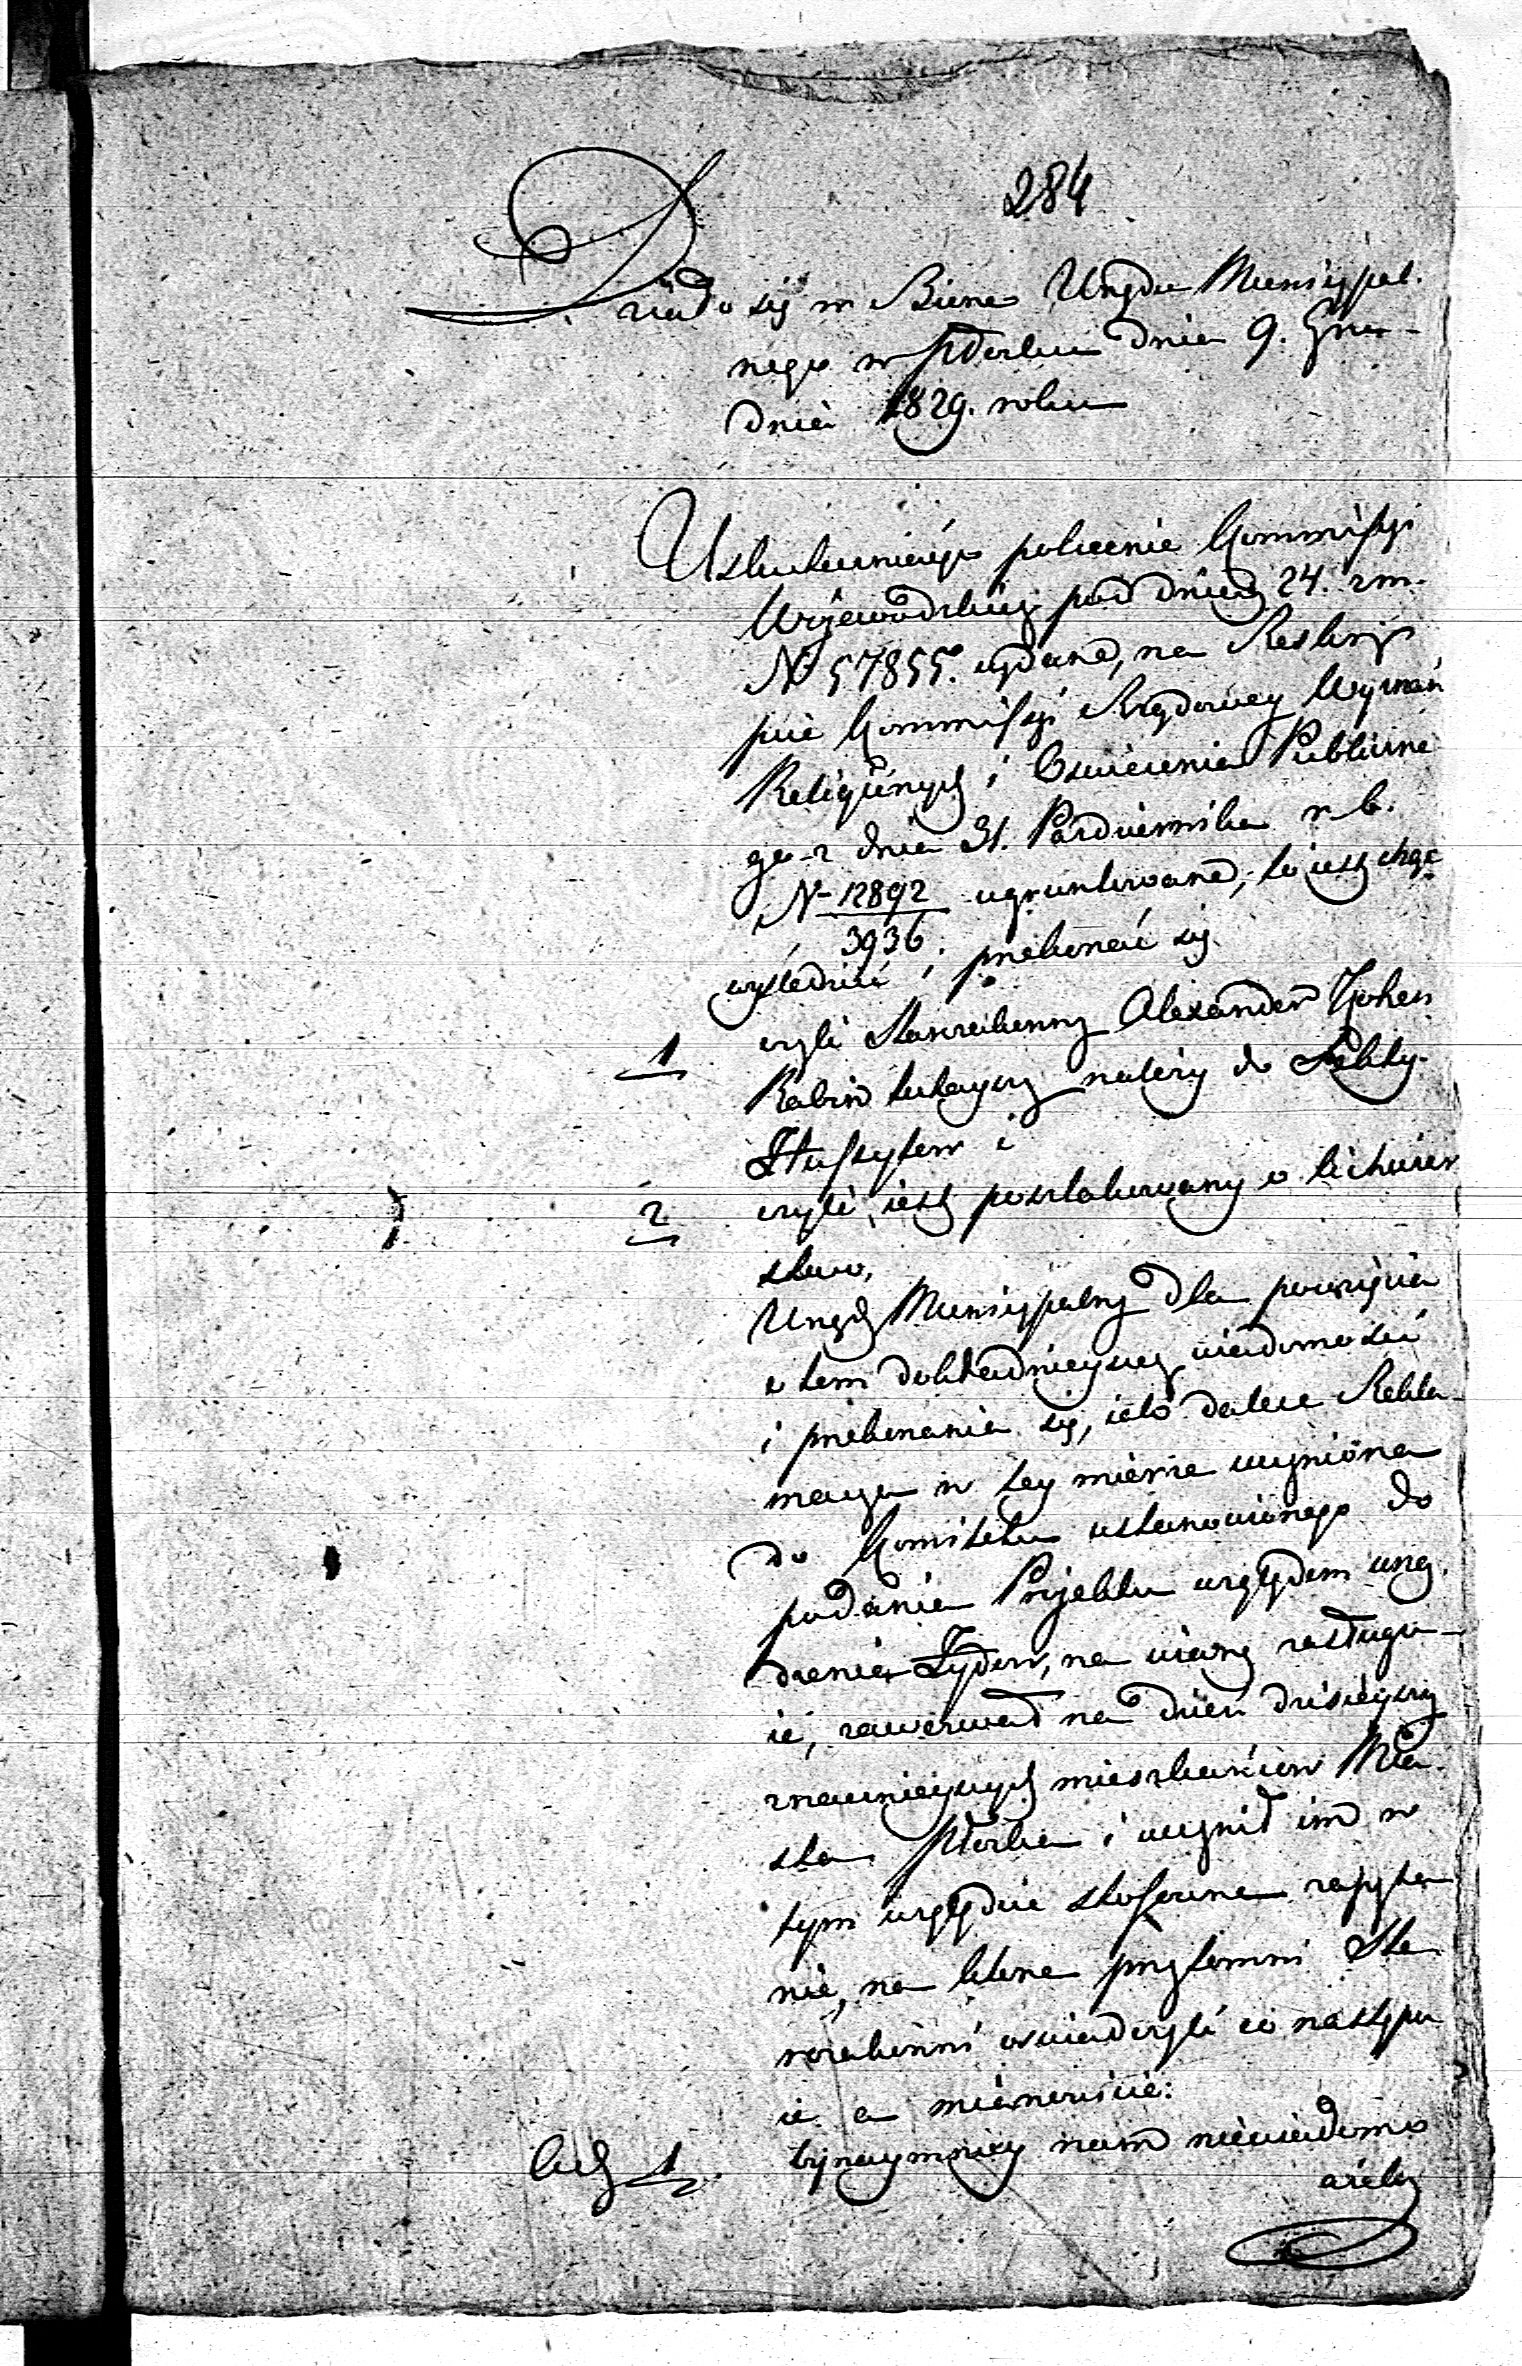 284
Działo się w Biurze Urzędu Municypal.
nego w Płocku dnia 9. Gru-
dnia 1829. roku
Uskuteczniając polecenie Kommissyi
Woiewodzkiey pod dniem 24. z m.
N 57855. wydane, na Reskryp
pcie Kommissyi Rządowey Wyznań
Religiinych i Oswiecenia Publiczne
go z dnia 31. Pazdziernika r. b.
N 12892
3936. ugruntowane, to iest chcąc
wysledzić i przekonać się
1 czyli Starozakonny Alexander Kohen
Rabin tuteyszy należy do Sekty
Hussytow i
2 czyli iest poszlakowany o lichwiar
stwo,
Urząd Municypalny dla powzięcia
o tem dokładnieyszey wiadomości
i przekonania się, iak dalece Rekla-
macya w tey mierze uczyniona
do Komitetu ustanowionego do
podania Projektu względem urzą.
dzenia Żydow, na wiarę zasługu-
ie, zawezwał na dzień dzisieyszy
znacznieyszych mieszkańcow Mia-
sta Płocka i uczynił im w
tym względzie stosowne zapyta
nie, na które przytomni Sta
rozakonni oswiadczyli co następu
ie a mianowicie:
Ad 1. bynaymniey nam niewiadomo
ażeby